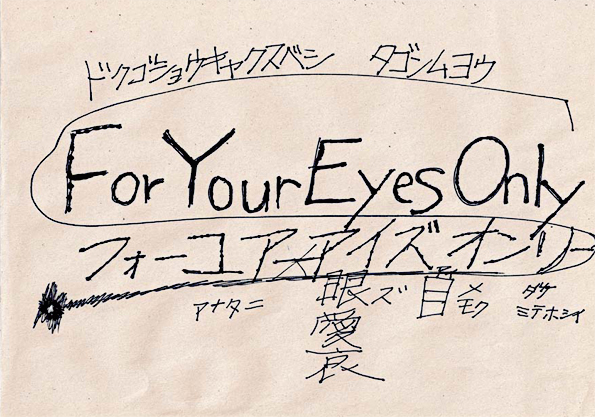 ドクゴショウキャクスベシ タゴンムヨウ
For Your Eyes Only
フォーユアアイズオンリー
アナタニ 眼ズ 目 メモク ダケ ミテホシイ
愛
哀